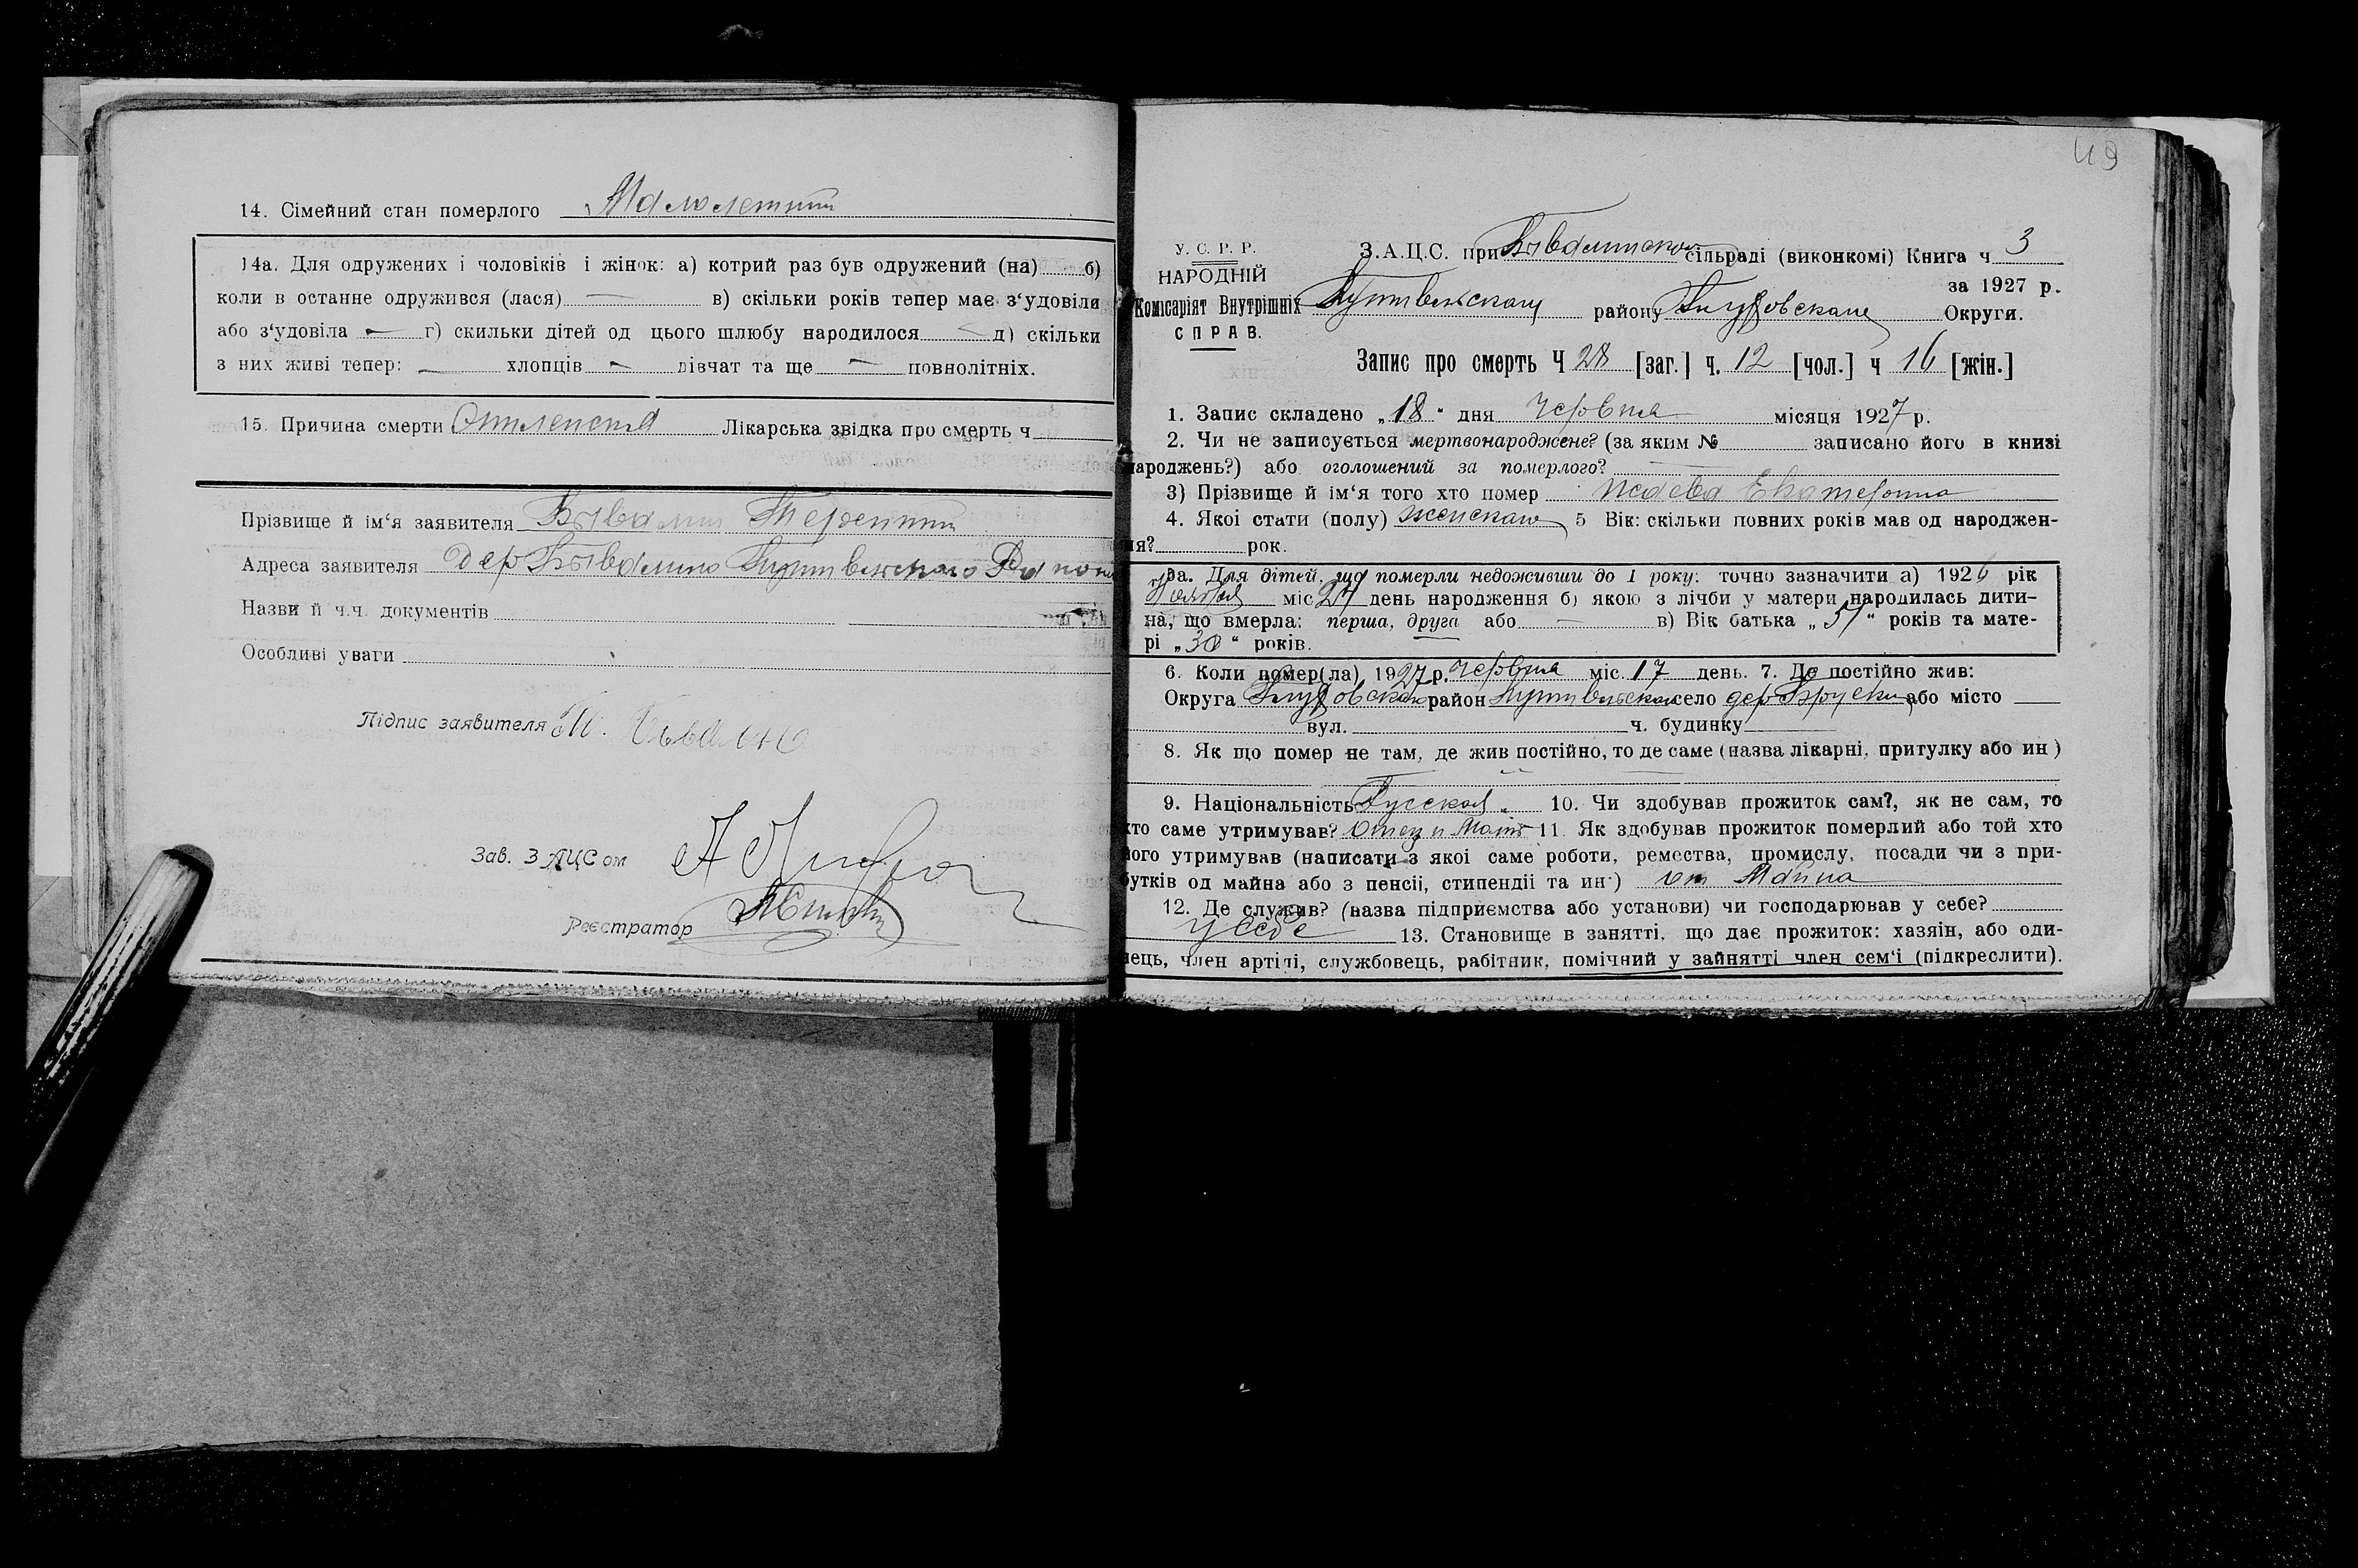 14. Сімейний стан померлого Малолетний
14а. Для одружених і чоловіків і жінок: а) котрий раз був одружений (на) б)
коли в останне одружився (лася) — в) скільки років тепер має з'удовіли
або з'удовіла — г) скильки дітей од цього шлюбу народилося д) скільки
з них живі тепер: — хлопців — дівчат та ще — повнолітніх.
15. Причина смерти Лікарська звідка про смерть ч
Прізвище й ім'я заявителя Бывалин Терентий
Адреса заявителя дер Бывалино Путивльского Району
Назви й ч.ч. документів
Особливі уваги
Підпис заявителя
Зав. ЗАЦСом
Реєстратор
49
У. С. Р. Р.
НАРОДНІЙ
Комісаріят Внутрішніх
СПРАВ.
З.А.Ц.С. при Бывалинском сільраді (виконкомі) Книга ч 3
за 1927 р.
Путивльскому району Глуховскаго Округи.
Запис про смерть Ч 28 [заг.] ч. 12 [чол.] ч 16 [жін.]
1. Запис складено „18" дня Червня місяця 1927 р.
2. Чи не записується мертвонароджене? (за яким № записано його в книзі
народжень?) або оголошений за померлого? —
3) Прізвище й ім'я того хто помер Исаева Екатерина
4. Якоі стати (полу) женскаго 5 Вік: скільки повних років мав од народжен-
ня? рок.
5а. Для дітей, що померли недоживши до 1 року: точно зазначити а) 1926 рік
Ноября міс 27 день народження б) якою з лічби у матери народилась дити-
на, що вмерла: перша, друга або — в) Вік батька „51" років та мате-
рі „30" років.
6. Коли помер(ла) 1927 р. червня міс. 17 день. 7. Де постійно жив:
Округа Глуховская район Путивльском село дер Бруски або місто —
вул. ч. будинку
8. Як що помер не там, де жив постійно, то де саме (назва лікарні, притулку або ин)
9. Національність Русская. 10. Чи здобував прожиток сам?, як не сам, то
хто саме утримував? Отец и Мать 11. Як здобував прожиток померлий або той хто
його утримував (написати з якоі саме роботи, ремества, промислу, посади чи з при-
бутків од майна або з пенсіі, стипендіі та ин) от Майна
12. Де служив? (назва підприємства або установи) чи господарював у себе?
у себе 13. Становище в занятті, що дає прожиток: хазяін, або оди-
нець, член артілі, службовець, рабітник, помічний у зайнятті член сем'і (підкреслити).